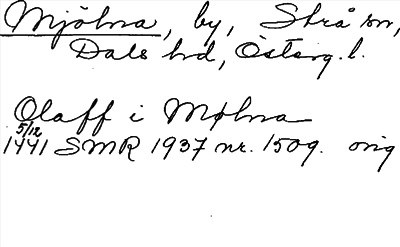 Mjölna, by, Strå sn,
Dals hd, Österg. l.
Olaff i Mølna
5/12
1441 SMR 1937 nr. 1509. orig